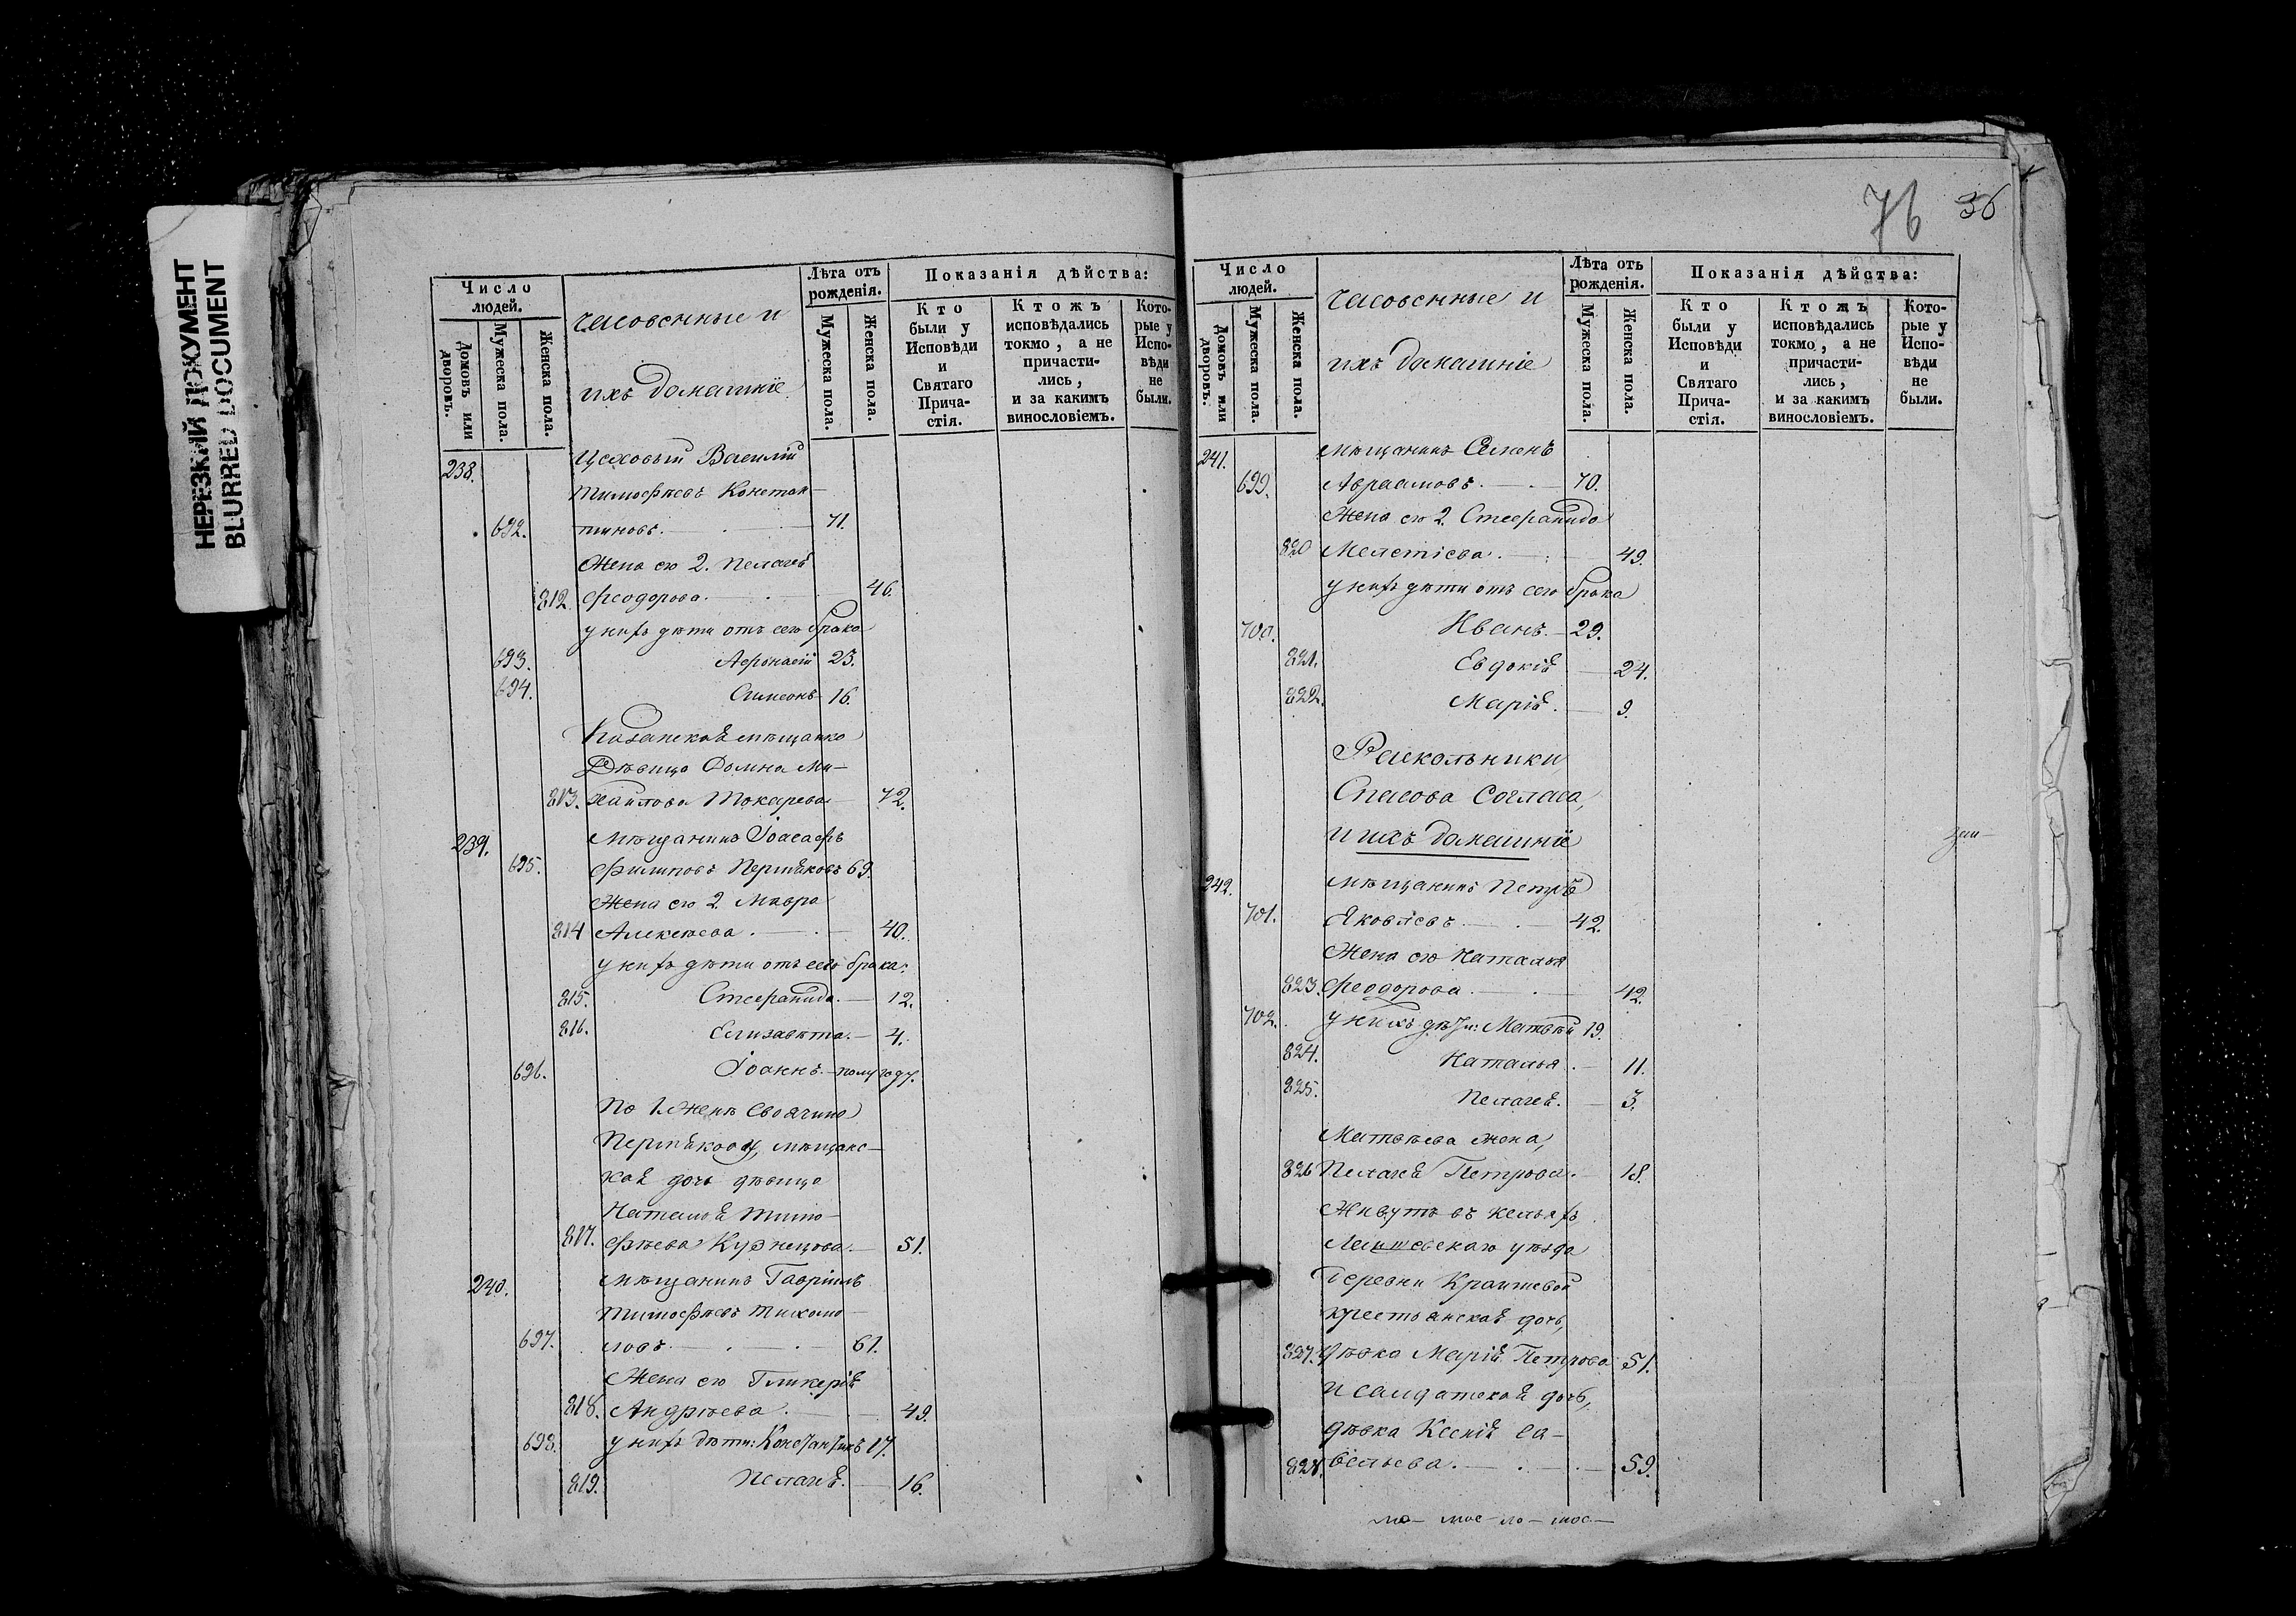 НЕРЕЗКИЙ ДОКУМЕНТ
BLURRED DOCUMENT
Число
людей.
Домовъ или
дворовъ.
Мужеска пола.
Женска пола.
Часовенные и
ихъ домашніе
Лѣта отъ
рожденія.
Мужеска пола.
Женска пола.
Показанія дѣйства:
Кто
были у
Исповѣди
и
Святаго
Прича-
стія.
Ктожъ
исповѣдались
токмо, а не
причасти-
лись,
и за какимъ
винословіемъ.
Кото-
рые у
Испо-
вѣди
не
были.
238. Цеховый Василій
Тимофѣевъ Констан-
692. тиновъ. 71.
Жена его 2. Пелагея
812. Феодорова. 46.
у нихъ дѣти отъ сего брака
693. Афонасій 23.
694. Симеонъ 16.
Казанская мѣщанка
Дѣвица Домна Ми-
813. хаилова Токарева 72.
239. Мѣщанинъ Іоасафъ
695. Филиповъ Перпяковъ 69.
Жена его 2. Мавра
814 Алексѣева. 40.
у нихъ дѣти отъ сего брака:
815. Стефанида. 12.
816. Елизавѣта. 4.
696. Іоаннъ. полугоду.
По 1 женѣ своячина
мѣщанс-
кая дочь дѣвица
Наталья Тимо-
817. фѣева Кузнецова. 51.
240. Мѣщанинъ Гавріилъ
Тимофѣевъ Тихоми-
697. ловъ 61.
Жена его Гликерія
818. Андрѣева. 49.
698. у нихъ дѣти: Константинъ 17.
819. Пелагея. 16.
76 36
Число
людей.
Домовъ или
дворовъ.
Мужеска пола.
Женска пола.
Часовенные и
ихъ домашніе
Лѣта отъ
рожденія.
Мужеска пола.
Женска пола.
Показанія дѣйства:
Кто
были у
Исповѣди
и
Святаго
Прича-
стія.
Ктожъ
исповѣдались
токмо, а не
причасти-
лись,
и за какимъ
винословіемъ.
Кото-
рые у
Испо-
вѣди
не
были.
241. Мѣщанинъ Семенъ
699. Авраамовъ. 70.
Жена его 2. Стефанида
820 Мелетіева. 49.
у нихъ дѣти отъ сего брака
700. Иванъ. 29.
821. Евдокія 24.
822. Марія. 9.
Раскольники
Спасова Согласа,
и ихъ домашніе
242. Мѣщанинъ Петръ
701. Яковлевъ. 42.
Жена его Наталья
823. Феодорова. 42.
702. у нихъ дѣти: Матвѣй 19.
824. Наталья. 11.
825. Пелагея. 3.
Матвѣева жена,
826 Пелагея Петрова. 18.
Живутъ въ кельяхъ
Лаишевскаго уѣзда
деревни
крестьянская дочь,
827. дѣвка Марія Петрова 51.
и салдатская дочь,
дѣвка Ксенія Са-
828. вельева. 59.